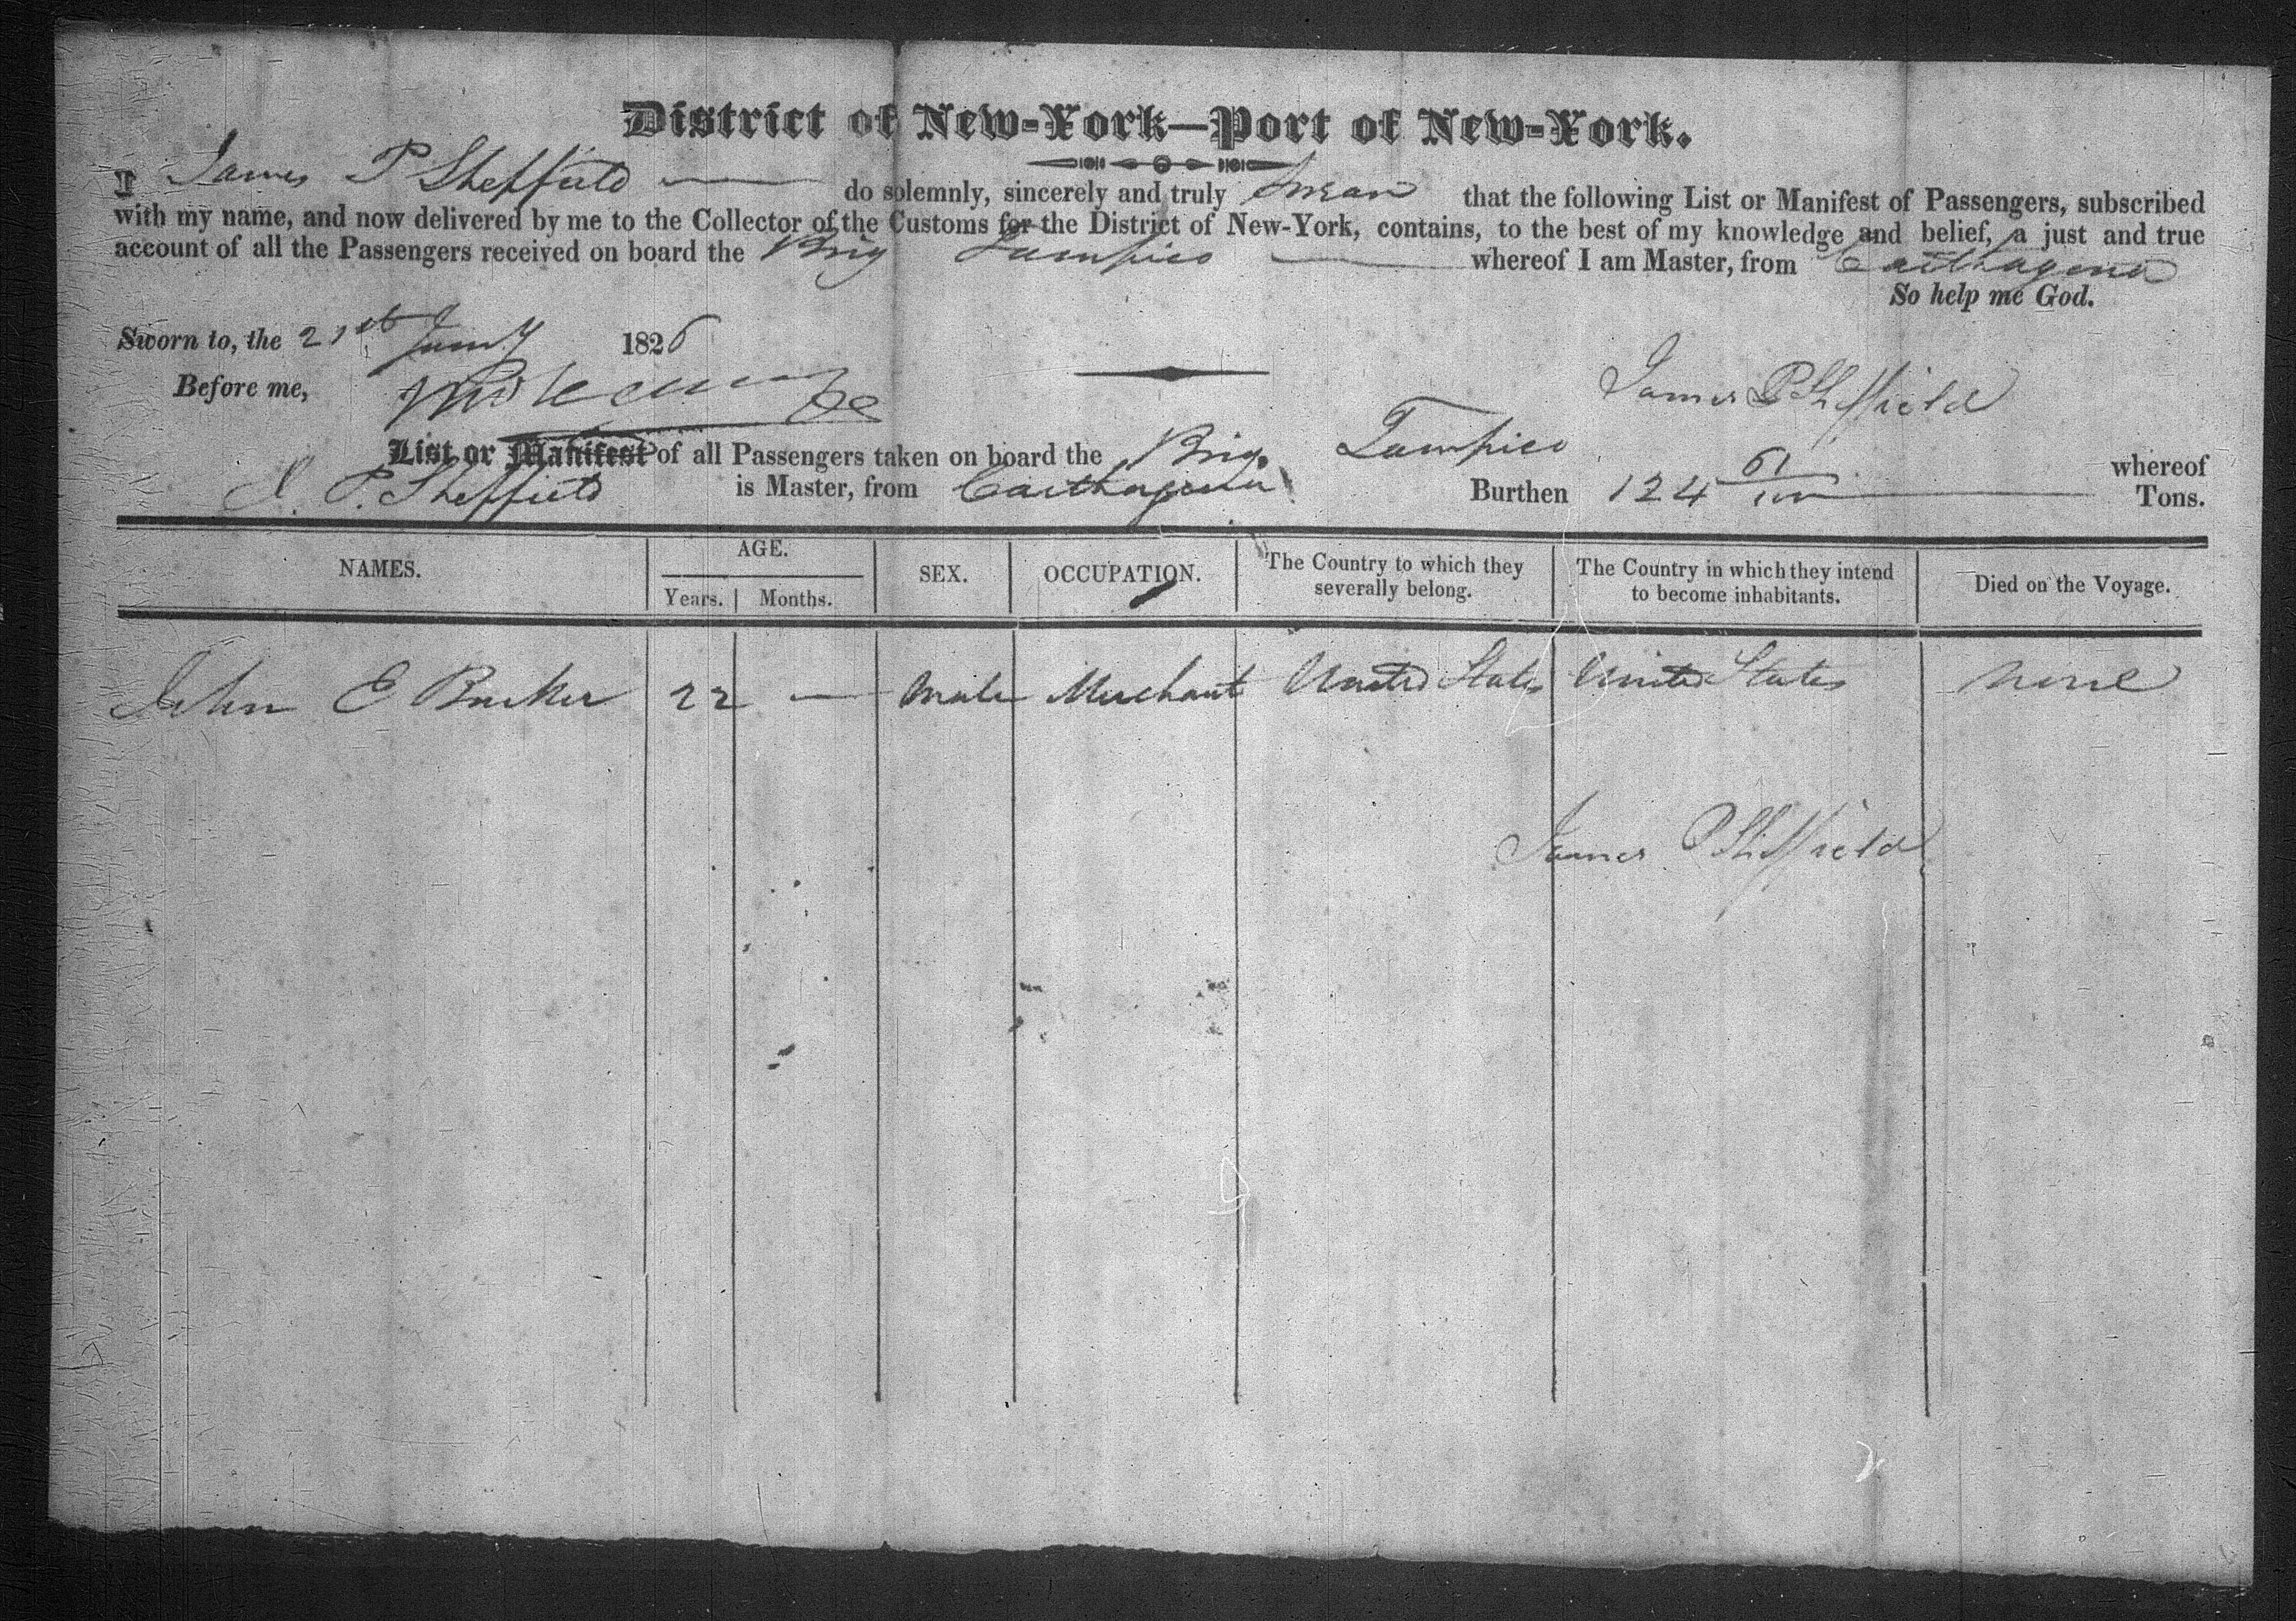 District of New-York—Port of New-York.
I James P Sheffield do solemnly, sincerely and truly swear that the following List or Manifest of Passengers, subscribed
with my name, and now delivered by me to the Collector of the Customs for the District of New-York, contains, to the best of my knowledge and belief, a just and true
account of all the Passengers received on board the Brig Tampico whereof I am Master, from Carthagena
So help me God.
Sworn to, the 21st Jany 1826
Before me,
James P Sheffield
List or Manifest of all Passengers taken on board the Brig Tampico whereof
J. P. Sheffield is Master, from Carthagena Burthen 124 61/100 Tons.
NAMES. AGE. Years. Months. SEX. OCCUPATION. The Country to which they severally belong. The Country in which they intend to become inhabitants. Died on the Voyage.
John E Barker 22 — male Merchant United States United States None
James P Sheffield